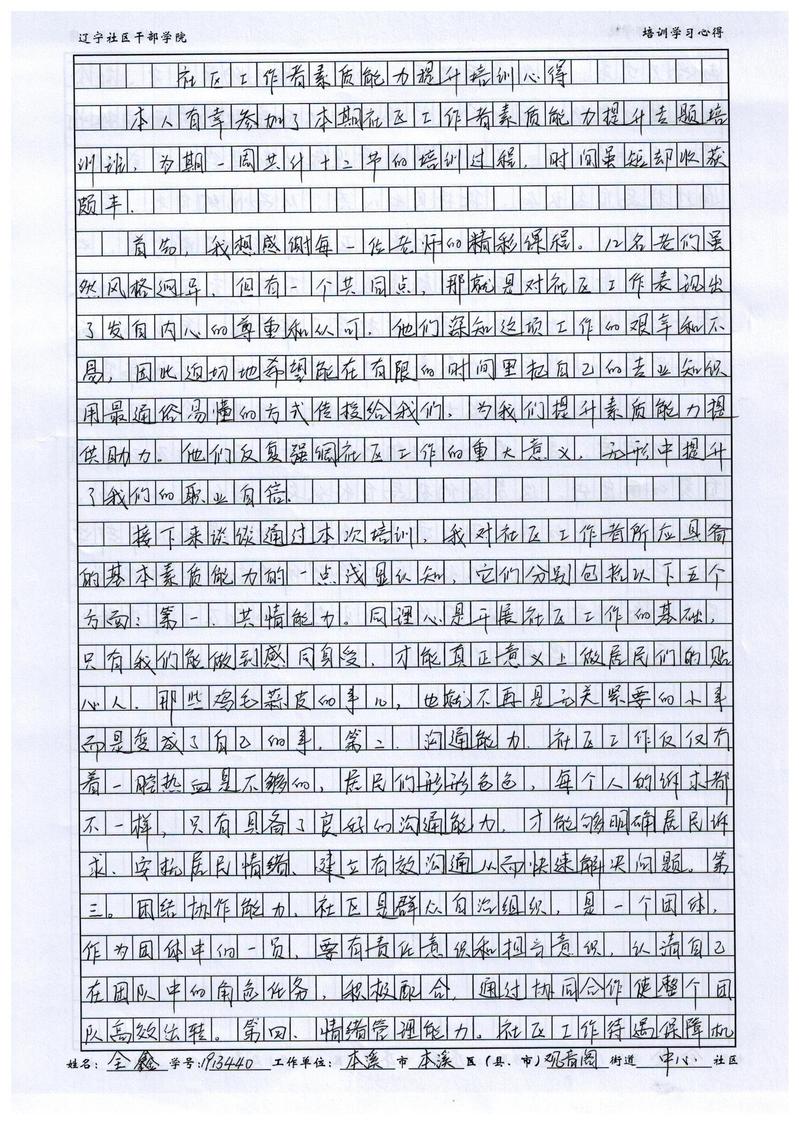 辽宁社区干部学院 培训学习心得
社区工作者素质能力提升培训心得
本人有幸参加了本期社区工作者素质能力提升专题培
训班，为期一周共计十二节的培训过程，时间虽短却收获
颇丰．
首先，我想感谢每一位老师的精彩课程。12名老师虽
然风格迥异，但有一个共同点，那就是对社区工作表现出
了发自内心的尊重和认可．他们深知这项工作的艰辛和不
易，因此迫切地希望能在有限的时间里把自己的专业知识
用最通俗易懂的方式传授给我们，为我们提升素质能力提
供助力．他们反复强调社区工作的重大意义，无形中提升
了我们的职业自信．
接下来谈谈通过本次培训，我对社区工作者所应具备
的基本素质能力的一点浅显认知，它们分别包括以下五个
方面：第一．共情能力。同理心是开展社区工作的基础，
只有我们能做到感同身受，才能真正意义上做居民们的贴
心人．那些鸡毛蒜皮的事儿，也就不再是无关紧要的小事
而是变成了自己的事．第二．沟通能力．社区工作仅仅有
着一腔热血是不够的，居民们形形色色，每个人的诉求都
不一样，只有具备了良好的沟通能力，才能够明确居民诉
求、安抚居民情绪、建立有效沟通从而快速解决问题。第
三。团结协作能力，社区是群众自治组织，是一个团体，
作为团体中的一员，要有责任意识和担当意识，认清自己
在团队中的角色任务，积极配合，通过协同合作使整个团
队高效运转。第四．情绪管理能力。社区工作待遇保障机
姓名：全鑫 学号：1913440 工作单位：本溪市本溪区（县、市）观音阁街道 中心 社区